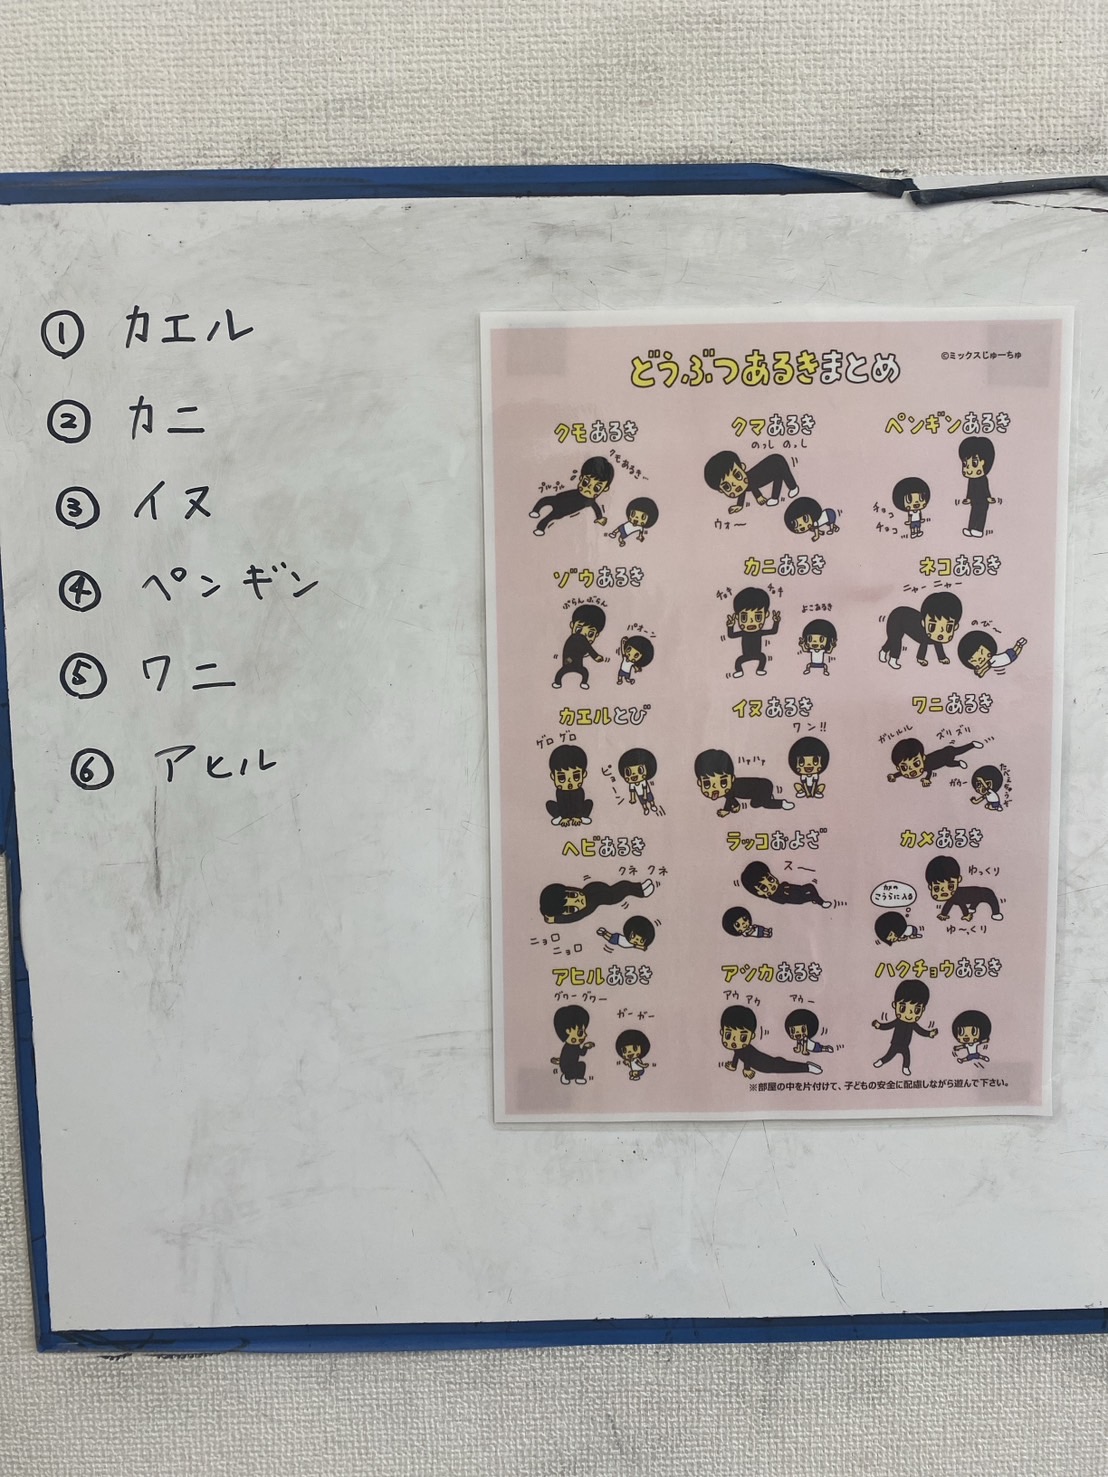 ① カエル
② カニ
③ イヌ
④ ペンギン
⑤ ワニ
⑥ アヒル
どうぶつあるきまとめ
©ミックスじゅーちゅ
クモあるき
クモあるき…
プルプル
クマあるき
のっし のっし
ウオー
ペンギンあるき
チョコ
チョコ
ゾウあるき
ぶらんぶらん
パオーン
カニあるき
チョキ チョキ
よこあるき
ネコあるき
ニャー ニャー
のび〜
カエルとび
ゲロ ゲロ
ピョーン
イヌあるき
ワン!!
ハァハァ
ワニあるき
ガルルル
ズリズリ
ガウー
たべちゃうぞ
ヘビあるき
クネ クネ
ニョロ
ニョロ
ラッコおよぎ
スー
カメあるき
ゆっくり
カメの
こうらに入る
ゆ〜っくり
アヒルあるき
グワー グワー
ガー ガー
アシカあるき
アウ アウ
アウー
ハクチョウあるき
※部屋の中を片付けて、子どもの安全に配慮しながら遊んで下さい。